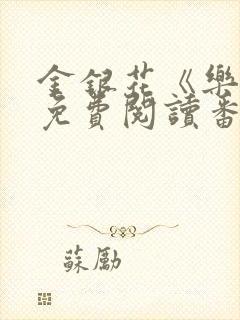 金銀花《樂
免費閱讀番
蘇勵